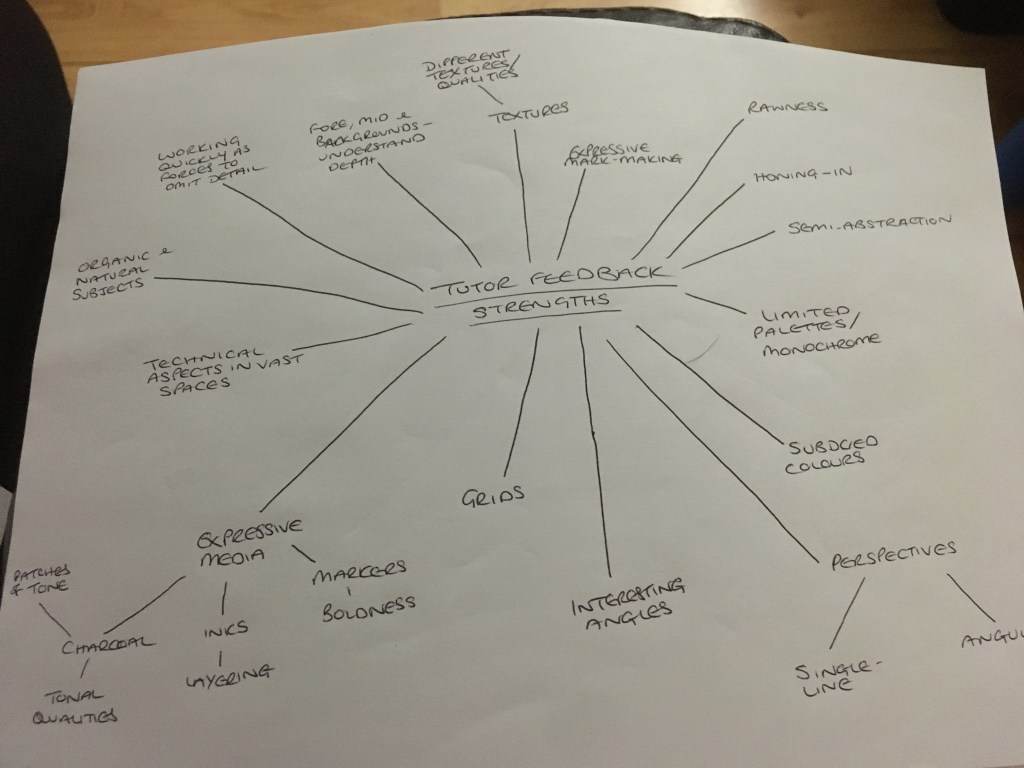 DIFFERENT
TEXTURES/
QUALITIES
TEXTURES
FORE, MID &
BACKGROUNDS -
UNDERSTAND
DEPTH
WORKING
QUICKLY AS
FORCES TO
OMIT DETAIL
EXPRESSIVE
MARK-MAKING
RAWNESS
HONING-IN
SEMI-ABSTRACTION
ORGANIC &
NATURAL
SUBJECTS
TUTOR FEEDBACK
STRENGTHS
LIMITED
PALETTES/
MONOCHROME
TECHNICAL
ASPECTS IN VAST
SPACES
SUBDUED
COLOURS
GRIDS
EXPRESSIVE
MEDIA
MARKERS
BOLDNESS
INTERESTING
ANGLES
PERSPECTIVES
PATCHES
OF TONE
CHARCOAL
TONAL
QUALITIES
INKS
LAYERING
SINGLE-
LINE